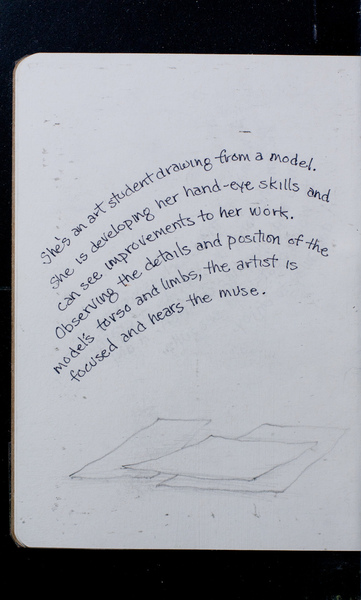 She's an art student drawing from a model.
She is developing her hand-eye skills and
can see improvements to her work.
Observing the details and position of the
model's torso and limbs, the artist is
focused and hears the muse.